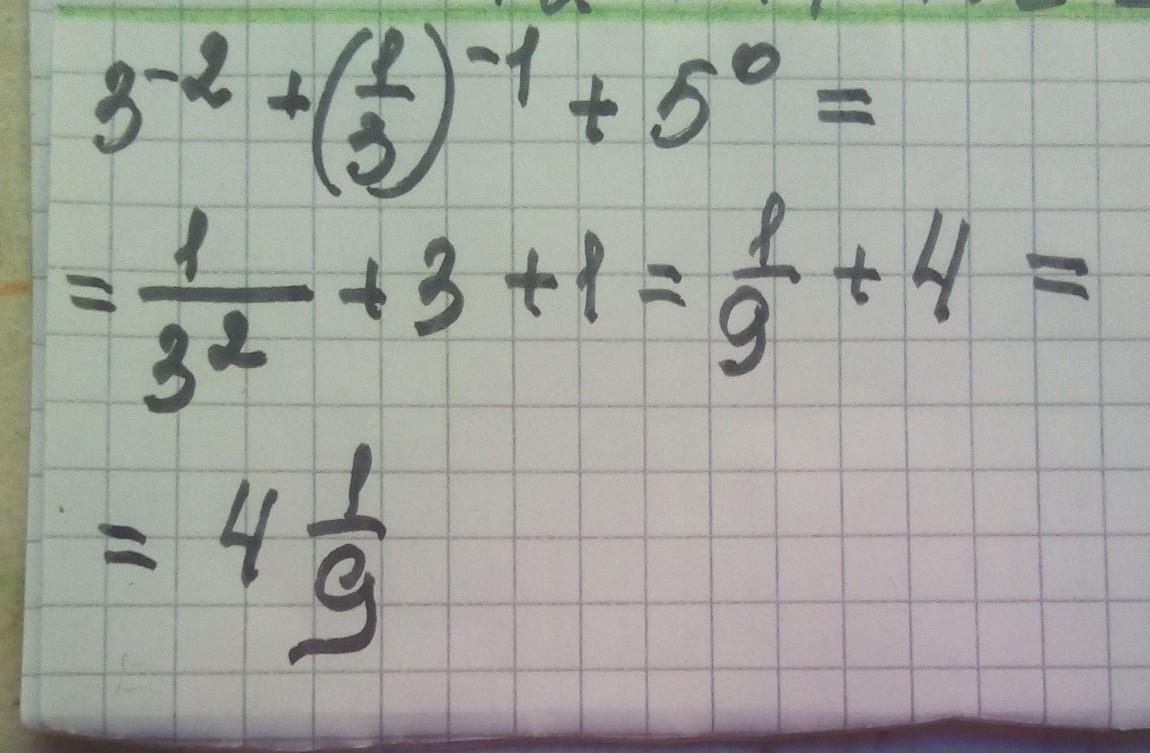 3⁻² + (1/3)⁻¹ + 5⁰ =
= 1/3² + 3 + 1 = 1/9 + 4 =
= 4 1/9